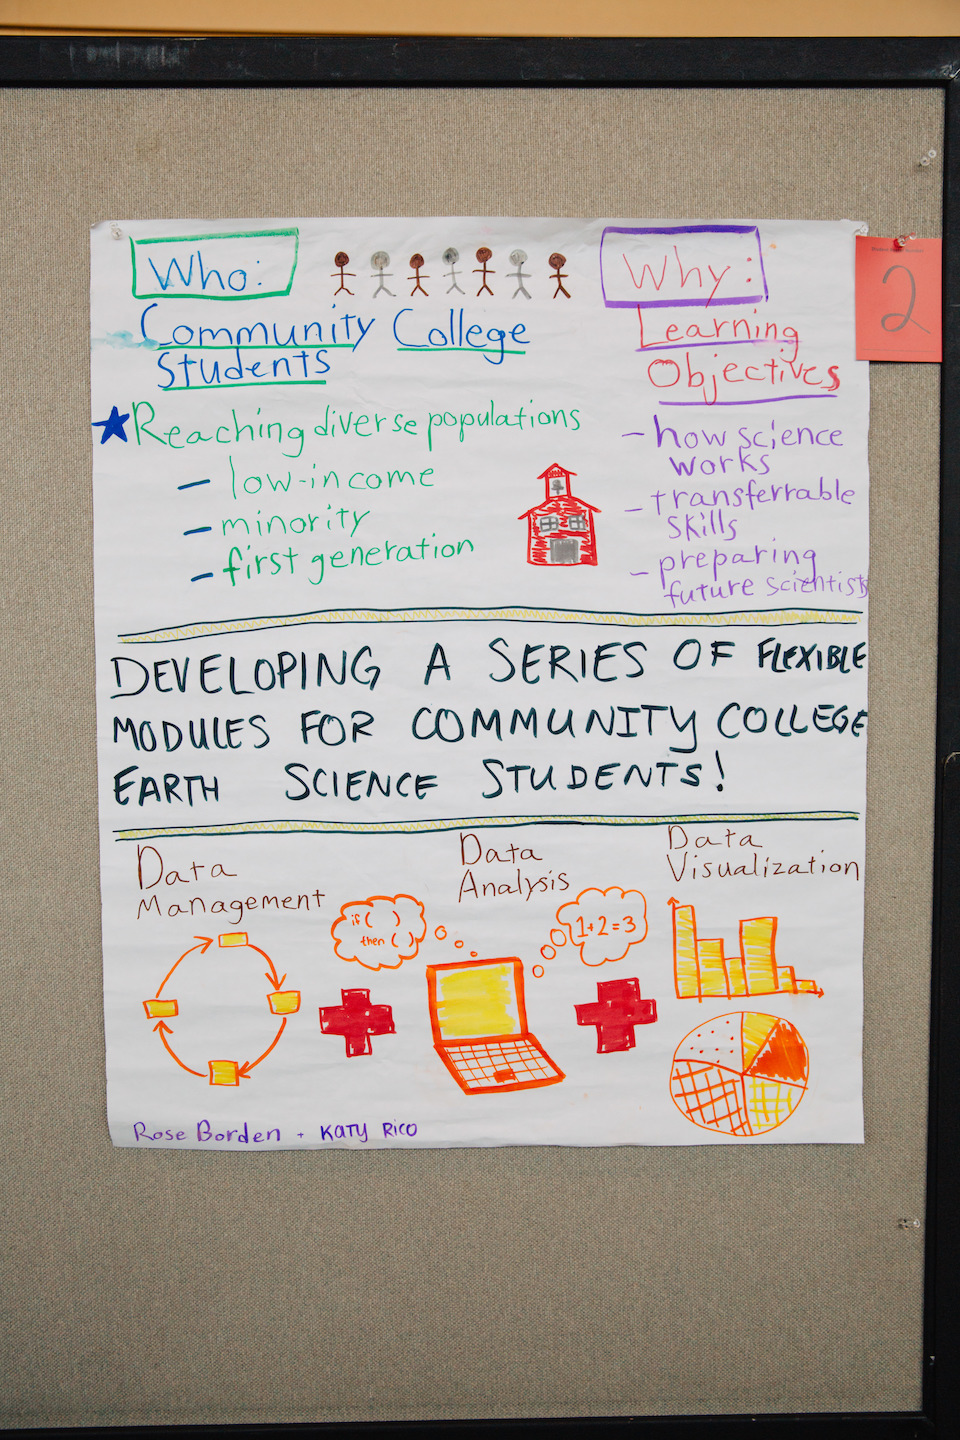 Who:
Community College
Students
★Reaching diverse populations
– low-income
– minority
– first generation
Why:
Learning
Objectives
– how science
works
– transferrable
skills
– preparing
future scientists
2
DEVELOPING A SERIES OF FLEXIBLE
MODULES FOR COMMUNITY COLLEGE
EARTH SCIENCE STUDENTS!
Data
Management
Data
Analysis
Data
Visualization
if ( )
then ( )
1+2=3
Rose Borden + KATY RICO